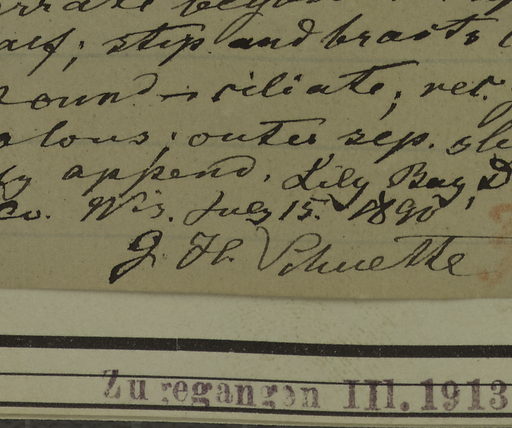 alf; stip and bracts
round-ciliate; rec.
alous; outer sep.
append. Lily Bay, D
Co. Wis. July 15. 1890
J. H. Schuette
Zugegangen III. 1913